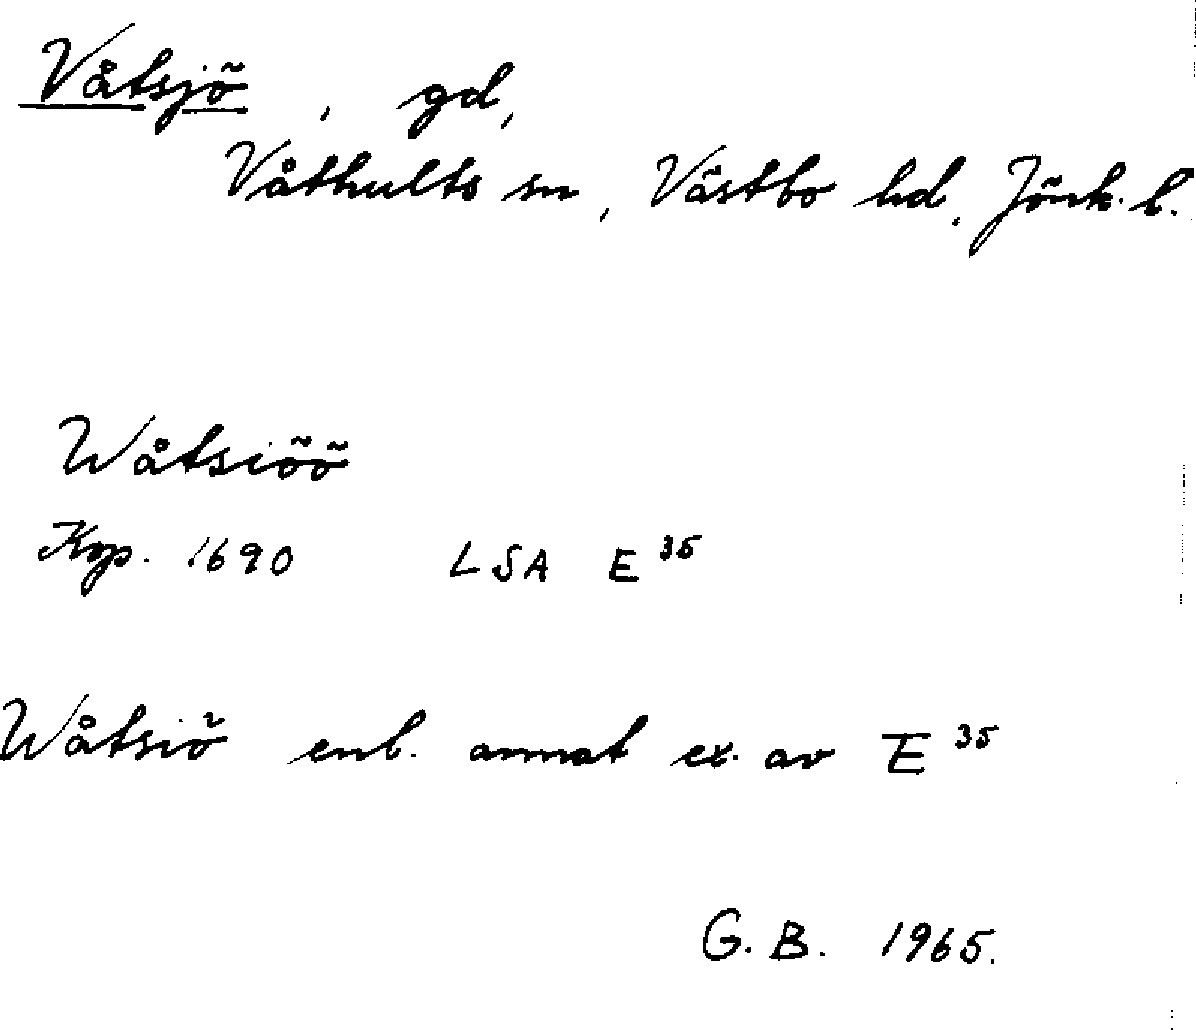 Våtsjö, gd,
Våthults sn, Västbo hd. Jönk. l.
Wåtsiöö
Kop. 1690 LSA E 35
Wåtsiö enl. annat ex. av E 35
G. B. 1965.